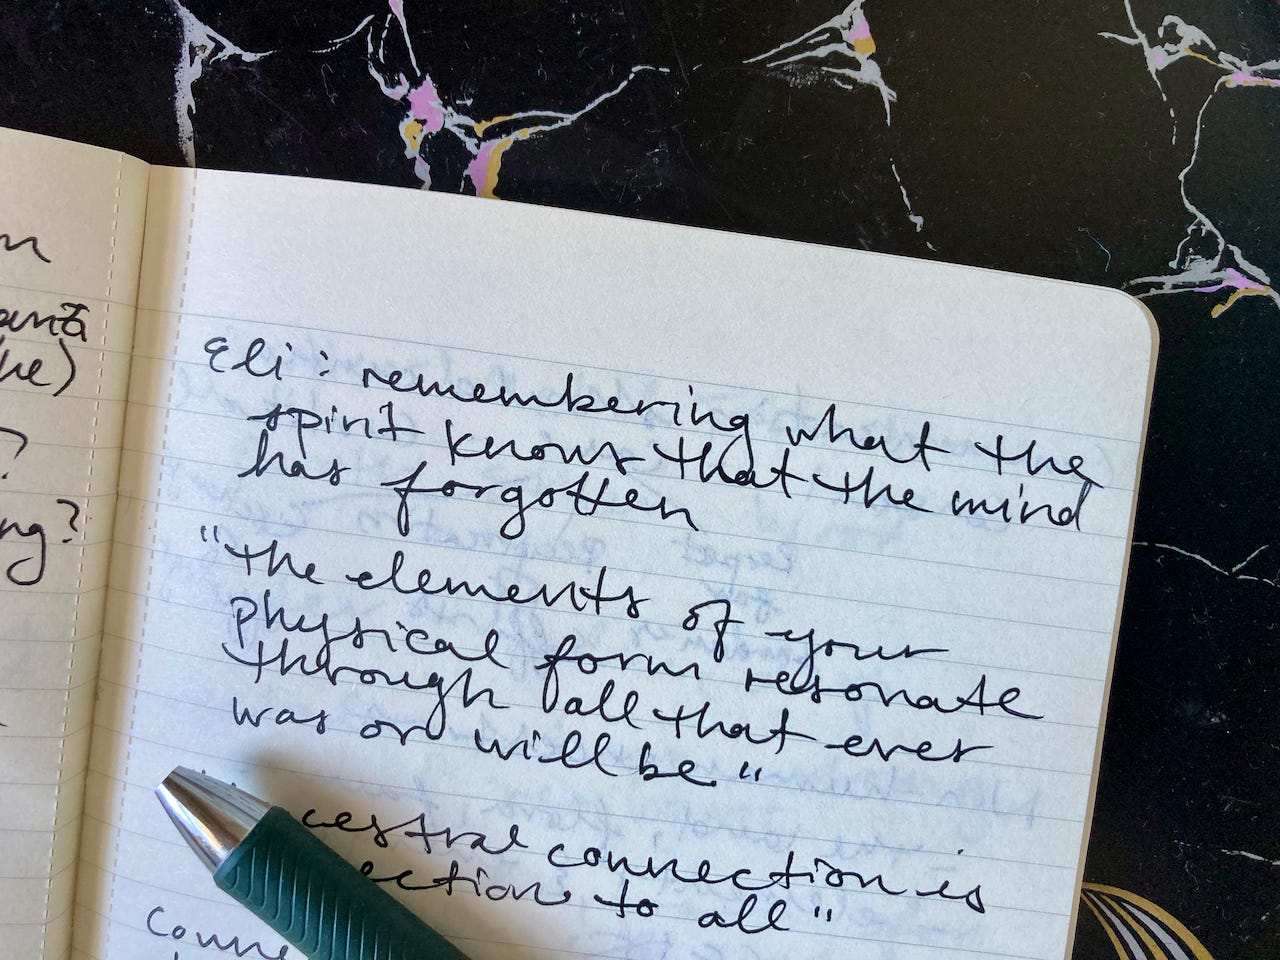 he)
?
ng?
Eli: remembering what the
spirit knows that the mind
has forgotten
"the elements of your
physical form resonate
through all that ever
was or will be."
cestral connection is
ection to all"
Conne